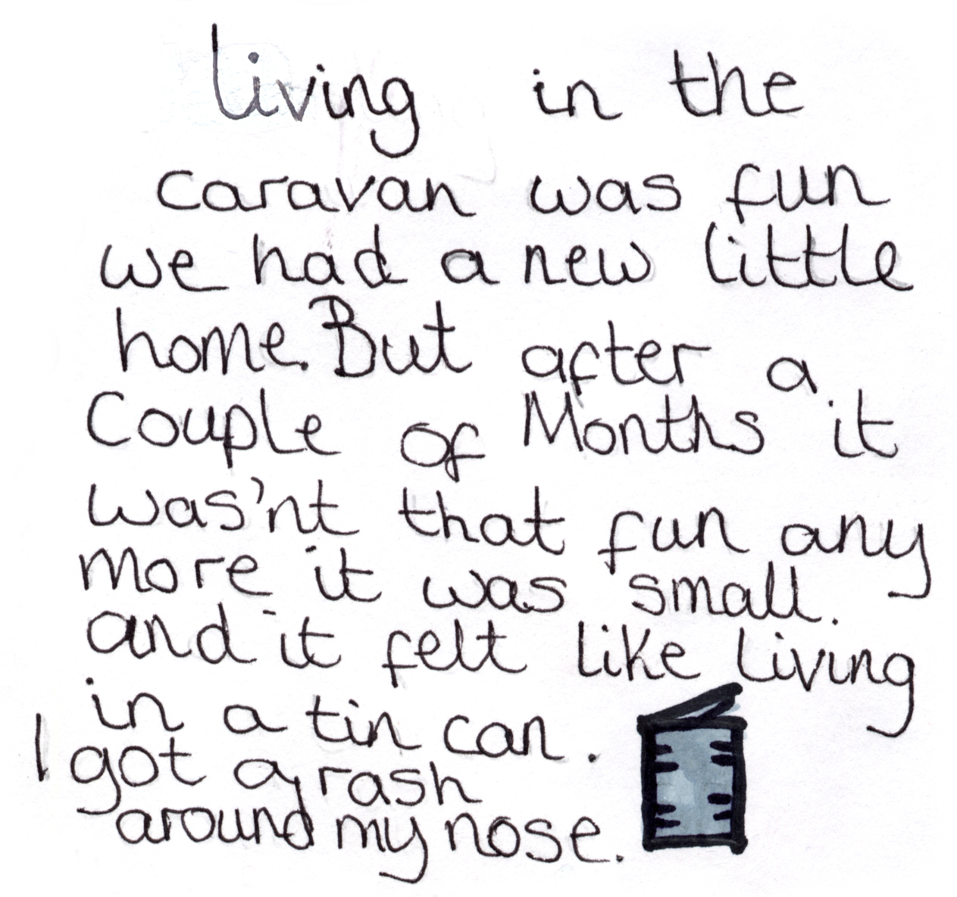 living in the
caravan was fun
we had a new little
home. But after a
Couple of Months it
was'nt that fun any
more it was small.
and it felt like living
in a tin can.
I got a rash
around my nose.